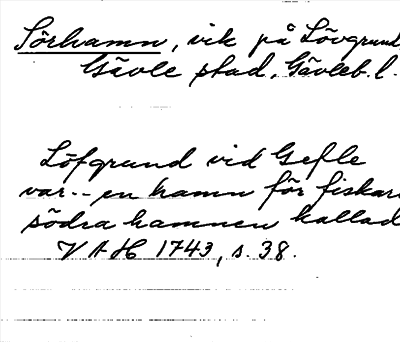 Sörhamn, vik på Lövgrund,
Gävle stad, Gävleb. l.
Löfgrund vid Gefle
var -- en hamn för fiskare
södra hamnen kallad
VAH 1743, s. 38.